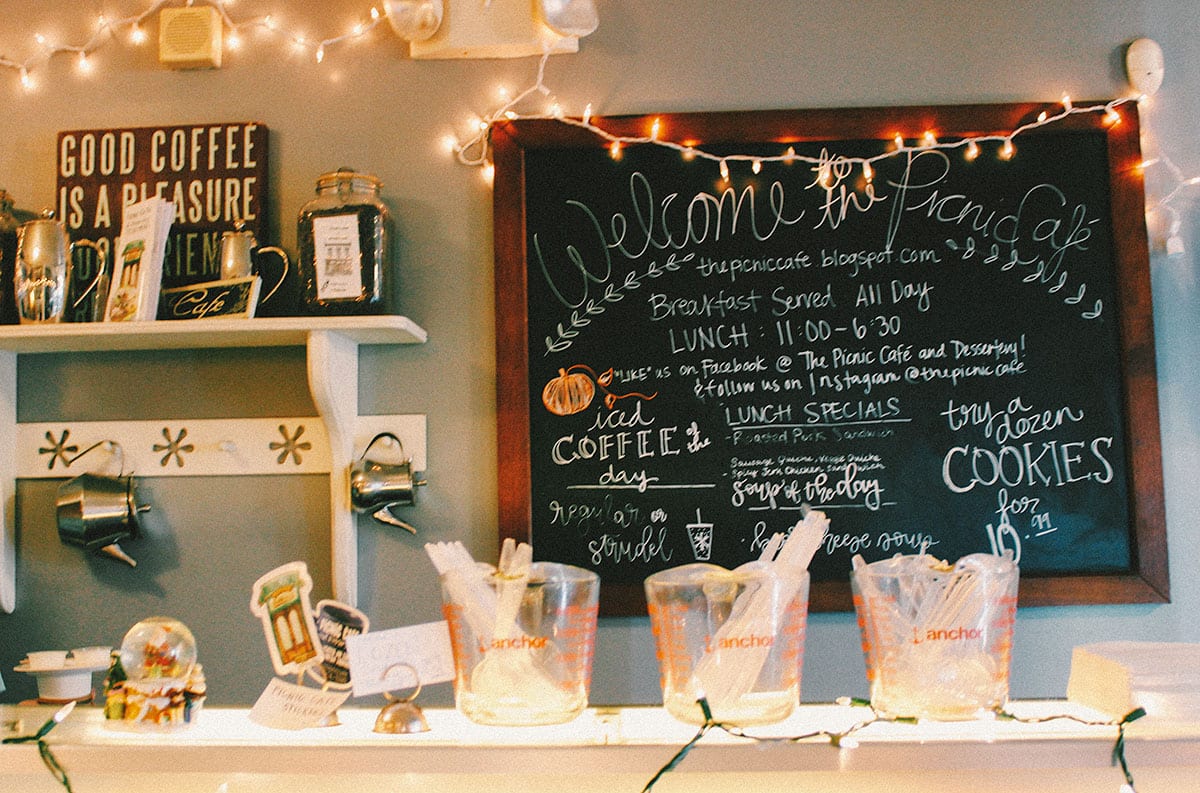 GOOD COFFEE
IS A PLEASURE
Café
Welcome to the Picnic Café
thepicniccafe.blogspot.com
Breakfast Served All Day
LUNCH : 11:00 - 6:30
"LIKE" us on Facebook @ The Picnic Café and Dessertery!
& follow us on Instagram @thepicniccafe
iced
COFFEE of the
day
regular or
strudel
LUNCH SPECIALS
- Roasted Pork Sandwich
Sausage Quiche, Veggie Quiche
- Spicy Jerk Chicken Sandwich
Soup of the day
cheese soup
try a
dozen
COOKIES
for
10.99
anchor
anchor
anchor
PICNIC CAFE
STICKERS